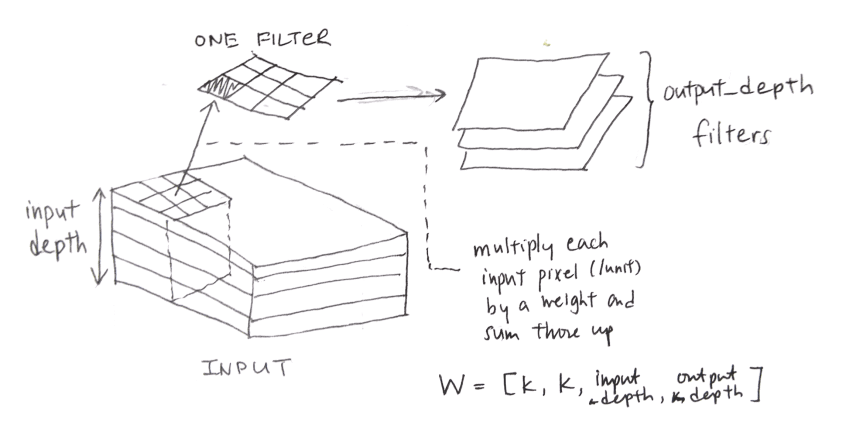 ONE FILTER
output_depth
filters
input
depth
multiply each
input pixel (/unit)
by a weight and
sum those up
INPUT
W = [k, k, input_depth, output_depth]